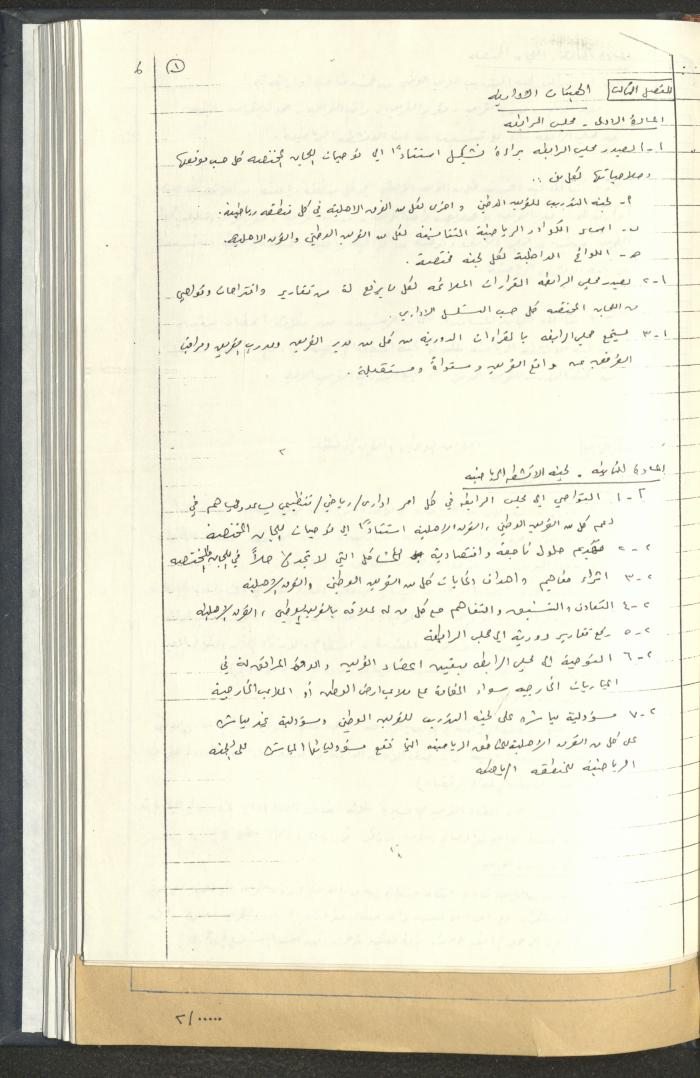 ٦ ①
الفصل الثالث الهيئات الادارية
المادة الاولى - مجلس الرابطة
١-١ يصدر مجلس الرابطة براءة تشكيل استناداً الى توصيات اللجان المختصة كل حسب موقعها
وصلاحياتها لكل من :.
أ- لجنة التدريب للفريق الوطني واخرى لكل من الفرق الاهلية في كل منطقة رياضية.
ب- اسماء الكوادر الرياضية المتنافسة لكل من الفريق الوطني والفرق الاهلية.
ج- اللوائح الداخلية لكل لجنة مختصة.
١-٢ يصدر مجلس الرابطة القرارات الملائمة لكل ما يرفع له من تقارير واقتراحات وتواصي
من اللجان المختصة كل حسب التسلسل الاداري.
١-٣ مجلس الرابطة الدورية من كل من مدير الفريق ومدرب الفريق ومرافق
الفريق عن واقع الفريق ومستواه ومستقبله.
المادة الثانية - لجنة الانشطة الرياضية
٢-١ التواصي الى مجلس الرابطة في كل امر اداري/رياضي/تنظيمي يساعد ويساهم في
دعم كل من الفريق الوطني، الفرق الاهلية استناداً الى توصيات اللجان المختصة
٢-٢ تقديم حلول ناجعة واقتصادية للمشاكل التي لا تجد لها حلاً في اللجان المختصة
٢-٣ اثراء مفاهيم واهداف كل من الفريق الوطني والفرق الاهلية
٢-٤ التعاون والتنسيق والتفاهم مع كل من له علاقة بالفريق الوطني، الفرق الاهلية
٢-٥ رفع تقارير دورية الى مجلس الرابطة
٢-٦ التوصية الى مجلس الرابطة بتعيين اعضاء الفريق والوفد المرافق له في
المباريات الخارجية سواء المقامة على ملاعب ارض الوطن أو الملاعب الخارجية
٢-٧ مسؤولية مباشرة على لجنة التدريب للفريق الوطني ومسؤولية غير مباشرة
على كل من الفرق الاهلية للمناطق الرياضية التي تقع مسؤولياتها المباشرة على اللجنة
الرياضية للمنطقة الرياضية
٢/.....